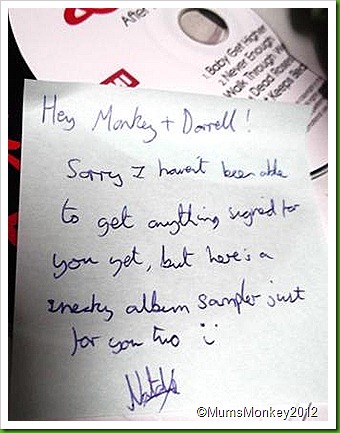 After
1. Baby Get Higher
2. Never Enough
Walk Through
Dead
Keeps
Hey Monkey + Darrell!
Sorry I haven't been able
to get anything signed for
you yet, but here's a
sneaky album sampler just
for you two
©MumsMonkey2012